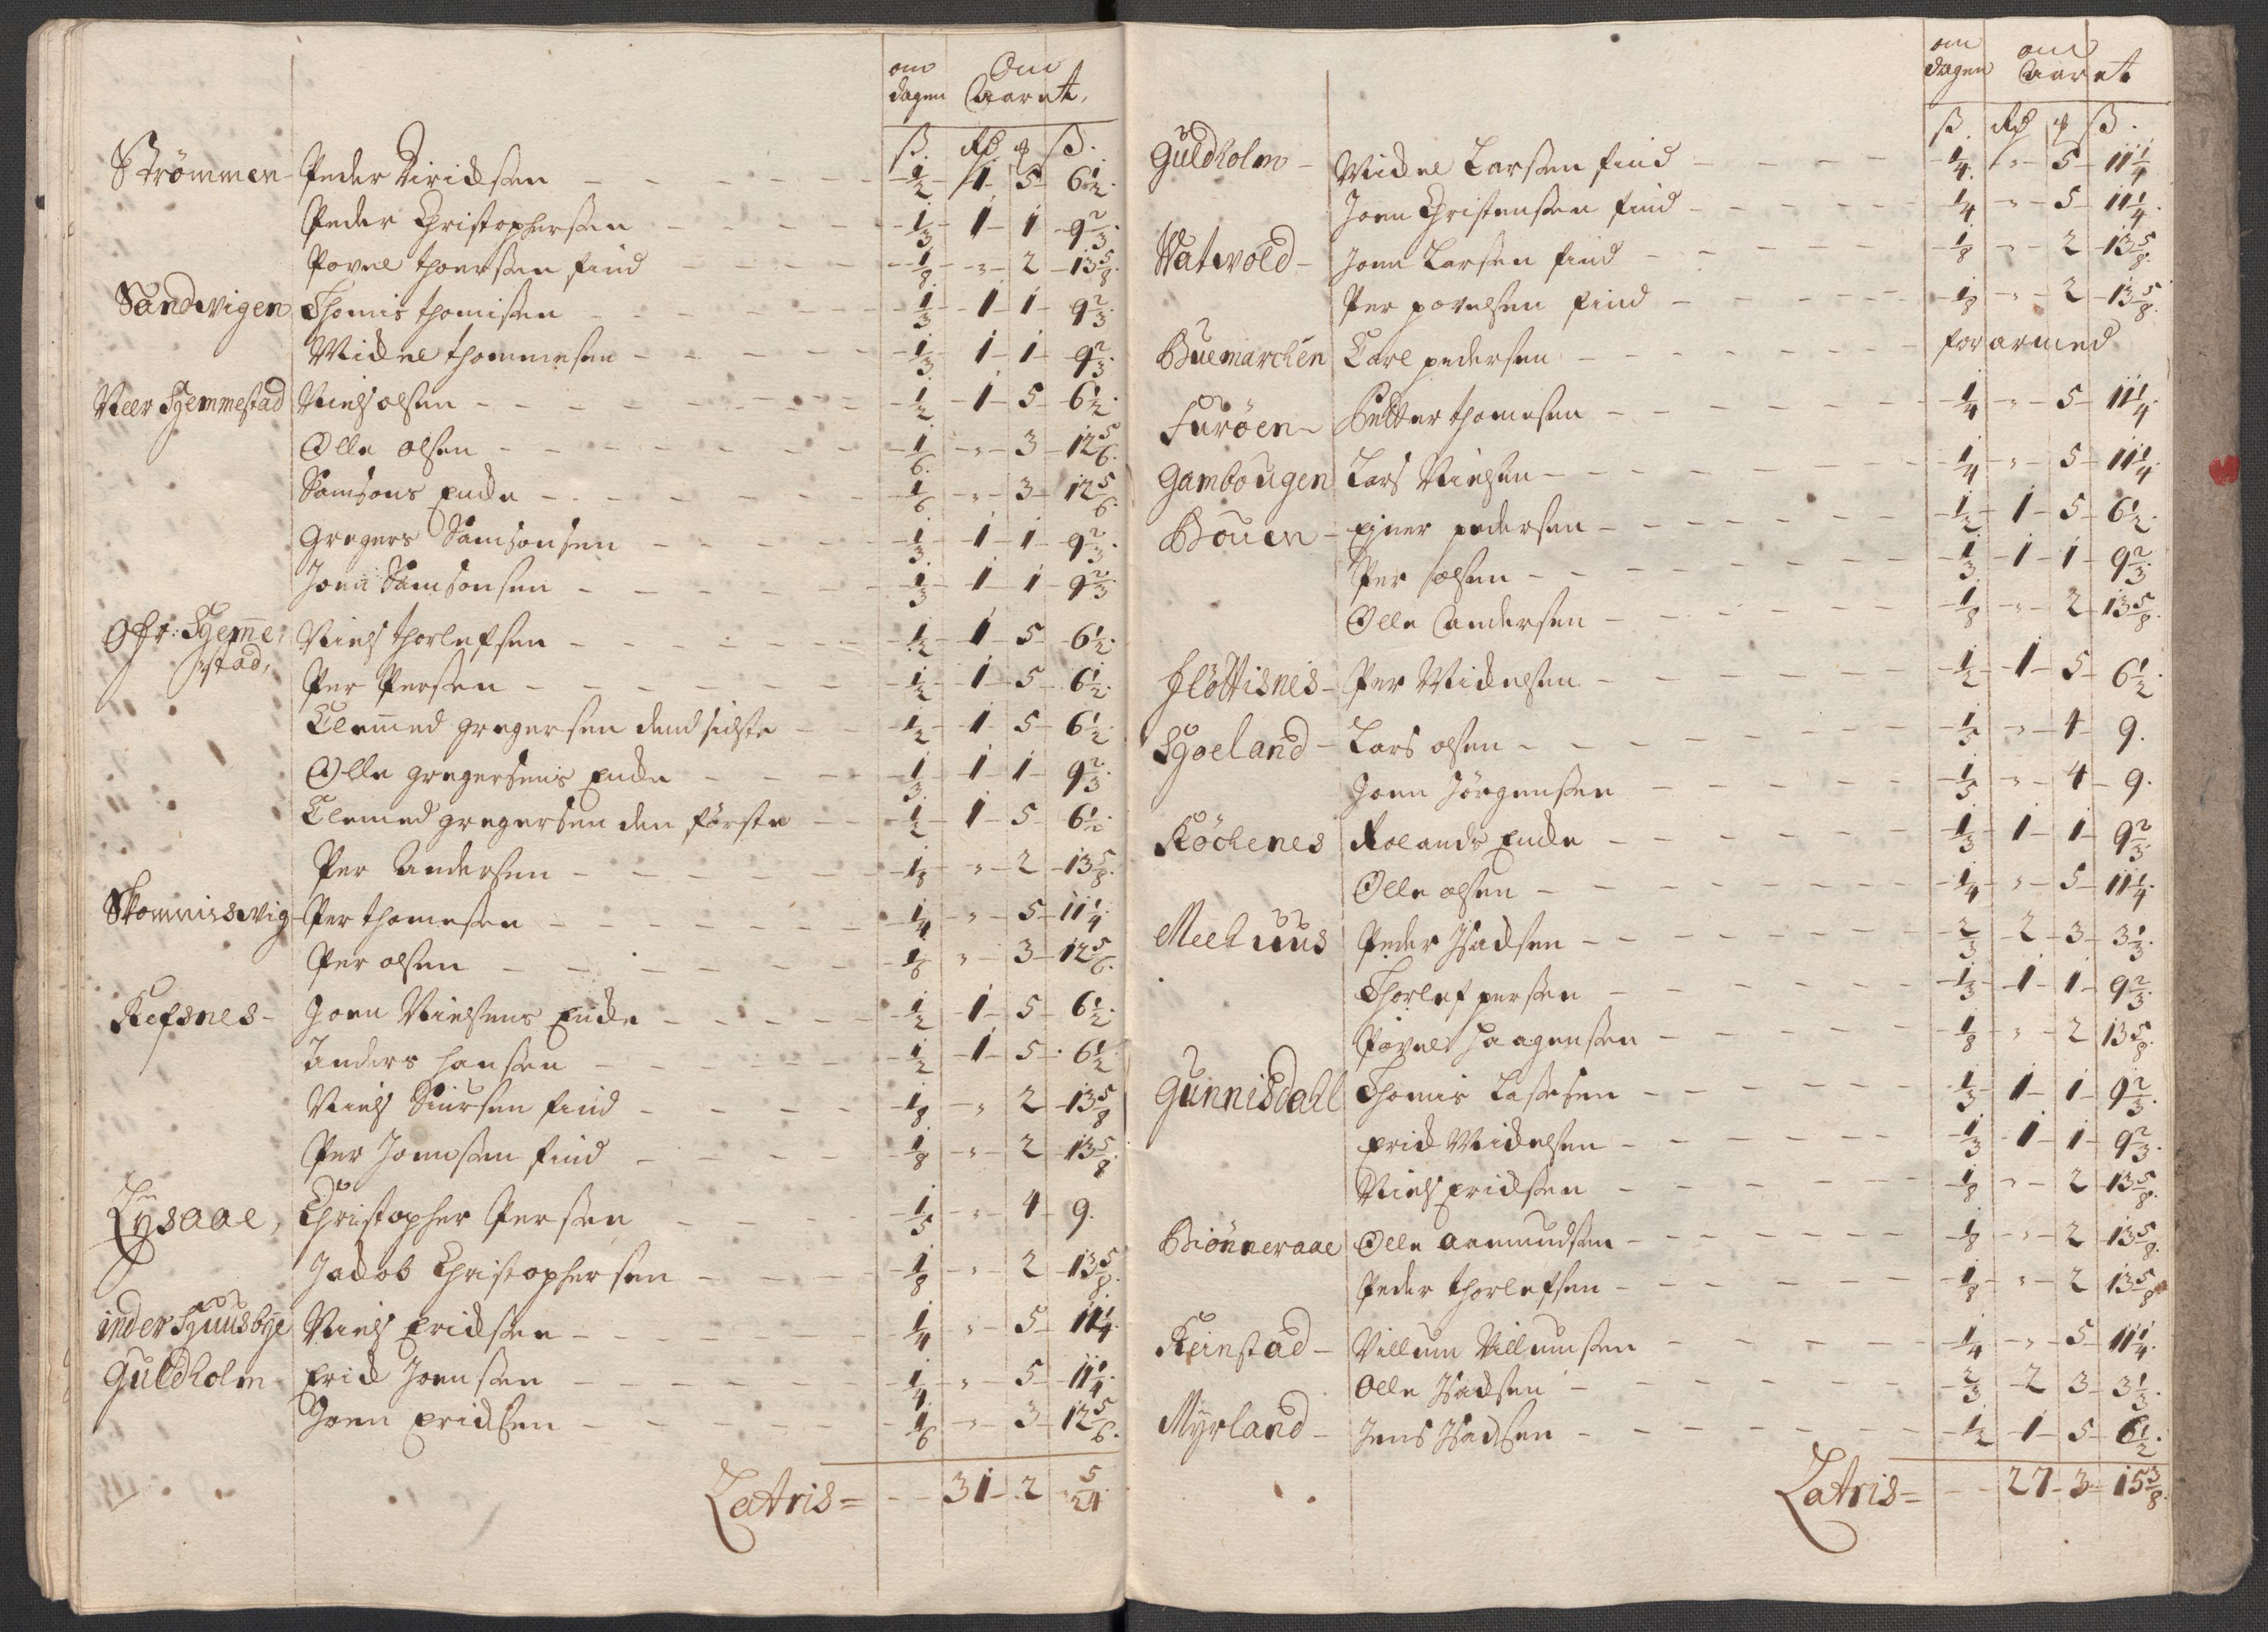 om dagen Om Aaret,
ß. Rd q ß.
Strømmen - Peder Dirichsen - 1/2 - 1 - 5 - 6 1/2.
Peder Christophersen - 1/3 - 1 - 1 - 9 2/3.
Povel thoersen find - 1/8 - " - 2 - 13 5/8.
Sandwigen Thomis thomisen - 1/3 - 1 - 1 - 9 2/3.
Michel thommesen - 1/3 - 1 - 1 - 9 2/3.
Neer Hjemmestad Niels olsen - 1/2 - 1 - 5 - 6 1/2.
Olle olsen - 1/6. - " - 3 - 12 5/6.
Samsons Encke - 1/6 - " - 3 - 12 5/6.
Gregers Samsonsen - 1/3. - 1 - 1 - 9 2/3.
Joen Samsonsen - 1/3 - 1 - 1 - 9 2/3
Ofr: Hjem̅e, Niels thorlefsen - 1/2 - 1 - 5 - 6 1/2.
stad, Per Persen - 1/2 - 1 - 5 - 6 1/2.
Clem̅ed gregersen dend sidste - 1/2 - 1 - 5 - 6 1/2.
Olle gregersens Encke - 1/3. - 1 - 1 - 9 2/3.
Clemed gregersen den første - 1/2 - 1 - 5 - 6 1/2.
Per Andersen - 1/8 - " - 2 - 13 5/8.
Per thomesen - 1/4. - " - 5 - 11 1/4.
Per olsen - 1/6 - " - 3 - 12 5/6.
Refsnes - Joen Nielsens Encke - 1/2 - 1 - 5 - 6 1/2.
Anders hansen - 1/2 - 1 - 5 - 6 1/2
Niels Siursen find - 1/8 - " - 2 - 13 5/8
Per Joensen find - 1/8 - " - 2 - 13 5/8.
Lysaae, Christopher Persen - 1/5 - " - 4 - 9.
Jacob Christophersen - 1/8 - " - 2 - 13 5/8.
inder Hjuusbye Niels Erichsen - 1/4 - " - 5 - 11 1/4.
Guldholm Erich Joensen - 1/4. - " - 5 - 11 1/4.
Joen Erichsen - 1/6 - " - 3 - 12 5/6.
Latris = - - 31 - 2 5/24
om dagen om Aaret
ß. Rd q ß.
Guldholm - Michel Larsen find - 1/4. - " - 5 - 11 1/4
Joen Christensen find - 1/4 - " - 5 - 11 1/4.
Watwold - Joen Larsen find - 1/8 - " - 2 - 13 5/8.
Per povelsen find - 1/8 - " - 2 - 13 5/8.
Buemarchen Carl pedersen - forarmed
Furøen - Petter thomesen - 1/4 - " - 5 - 11 1/4.
Gambougen Lars Nielsen - 1/4 - " - 5 - 11 1/4.
Bouen - Ejner pedersen - 1/2 - 1 - 5 - 6 1/2.
Per olsen - 1/3 - 1 - 1 - 9 2/3.
Olle Andersen - 1/8 - " - 2 - 13 5/8.
Flöttisnes - Per Michelsen - 1/2 - 1 - 5 - 6 1/2.
Lars olsen - 1/5 - " - 4 9.
Joen Jörgensen - 1/5 - " - 4 - 9.
Köckenes Rolands Encke - 1/3 - 1 - 1 - 9 2/3.
Olle olsen - 1/4 - " - 5 - 11 1/4.
Meehuus Peder Isachsen - 2/3 - 2 - 3 - 3 1/3.
Thorlef persen - 1/3 - 1 - 1 - 9 2/3.
Povel Haagensen - 1/8 - " - 2 13 5/8.
Gunnisdahl Thomis Lassesen - 1/3 - 1 - 1 - 9 2/3.
Erich Michelsen - 1/3 - 1 - 1 - 9 2/3.
Niels Erichsen - 1/8 - " - 2 - 13 5/8.
Biönneraae Olle Aamundsen - 1/8 - " - 2 - 13 5/8.
Peder thorlefsen - 1/8 - " - 2 13 5/8
Reinstad - Villum Villumsen - 1/4 - " - 5 - 11 1/4.
Olle Isachsen - 2/3 - 2 3 - 3 1/3.
Myrland - Jens Isachsen - 1/2 - 1 - 5 - 6 1/2.
Latris = - - 27 - 3 - 15 3/8.